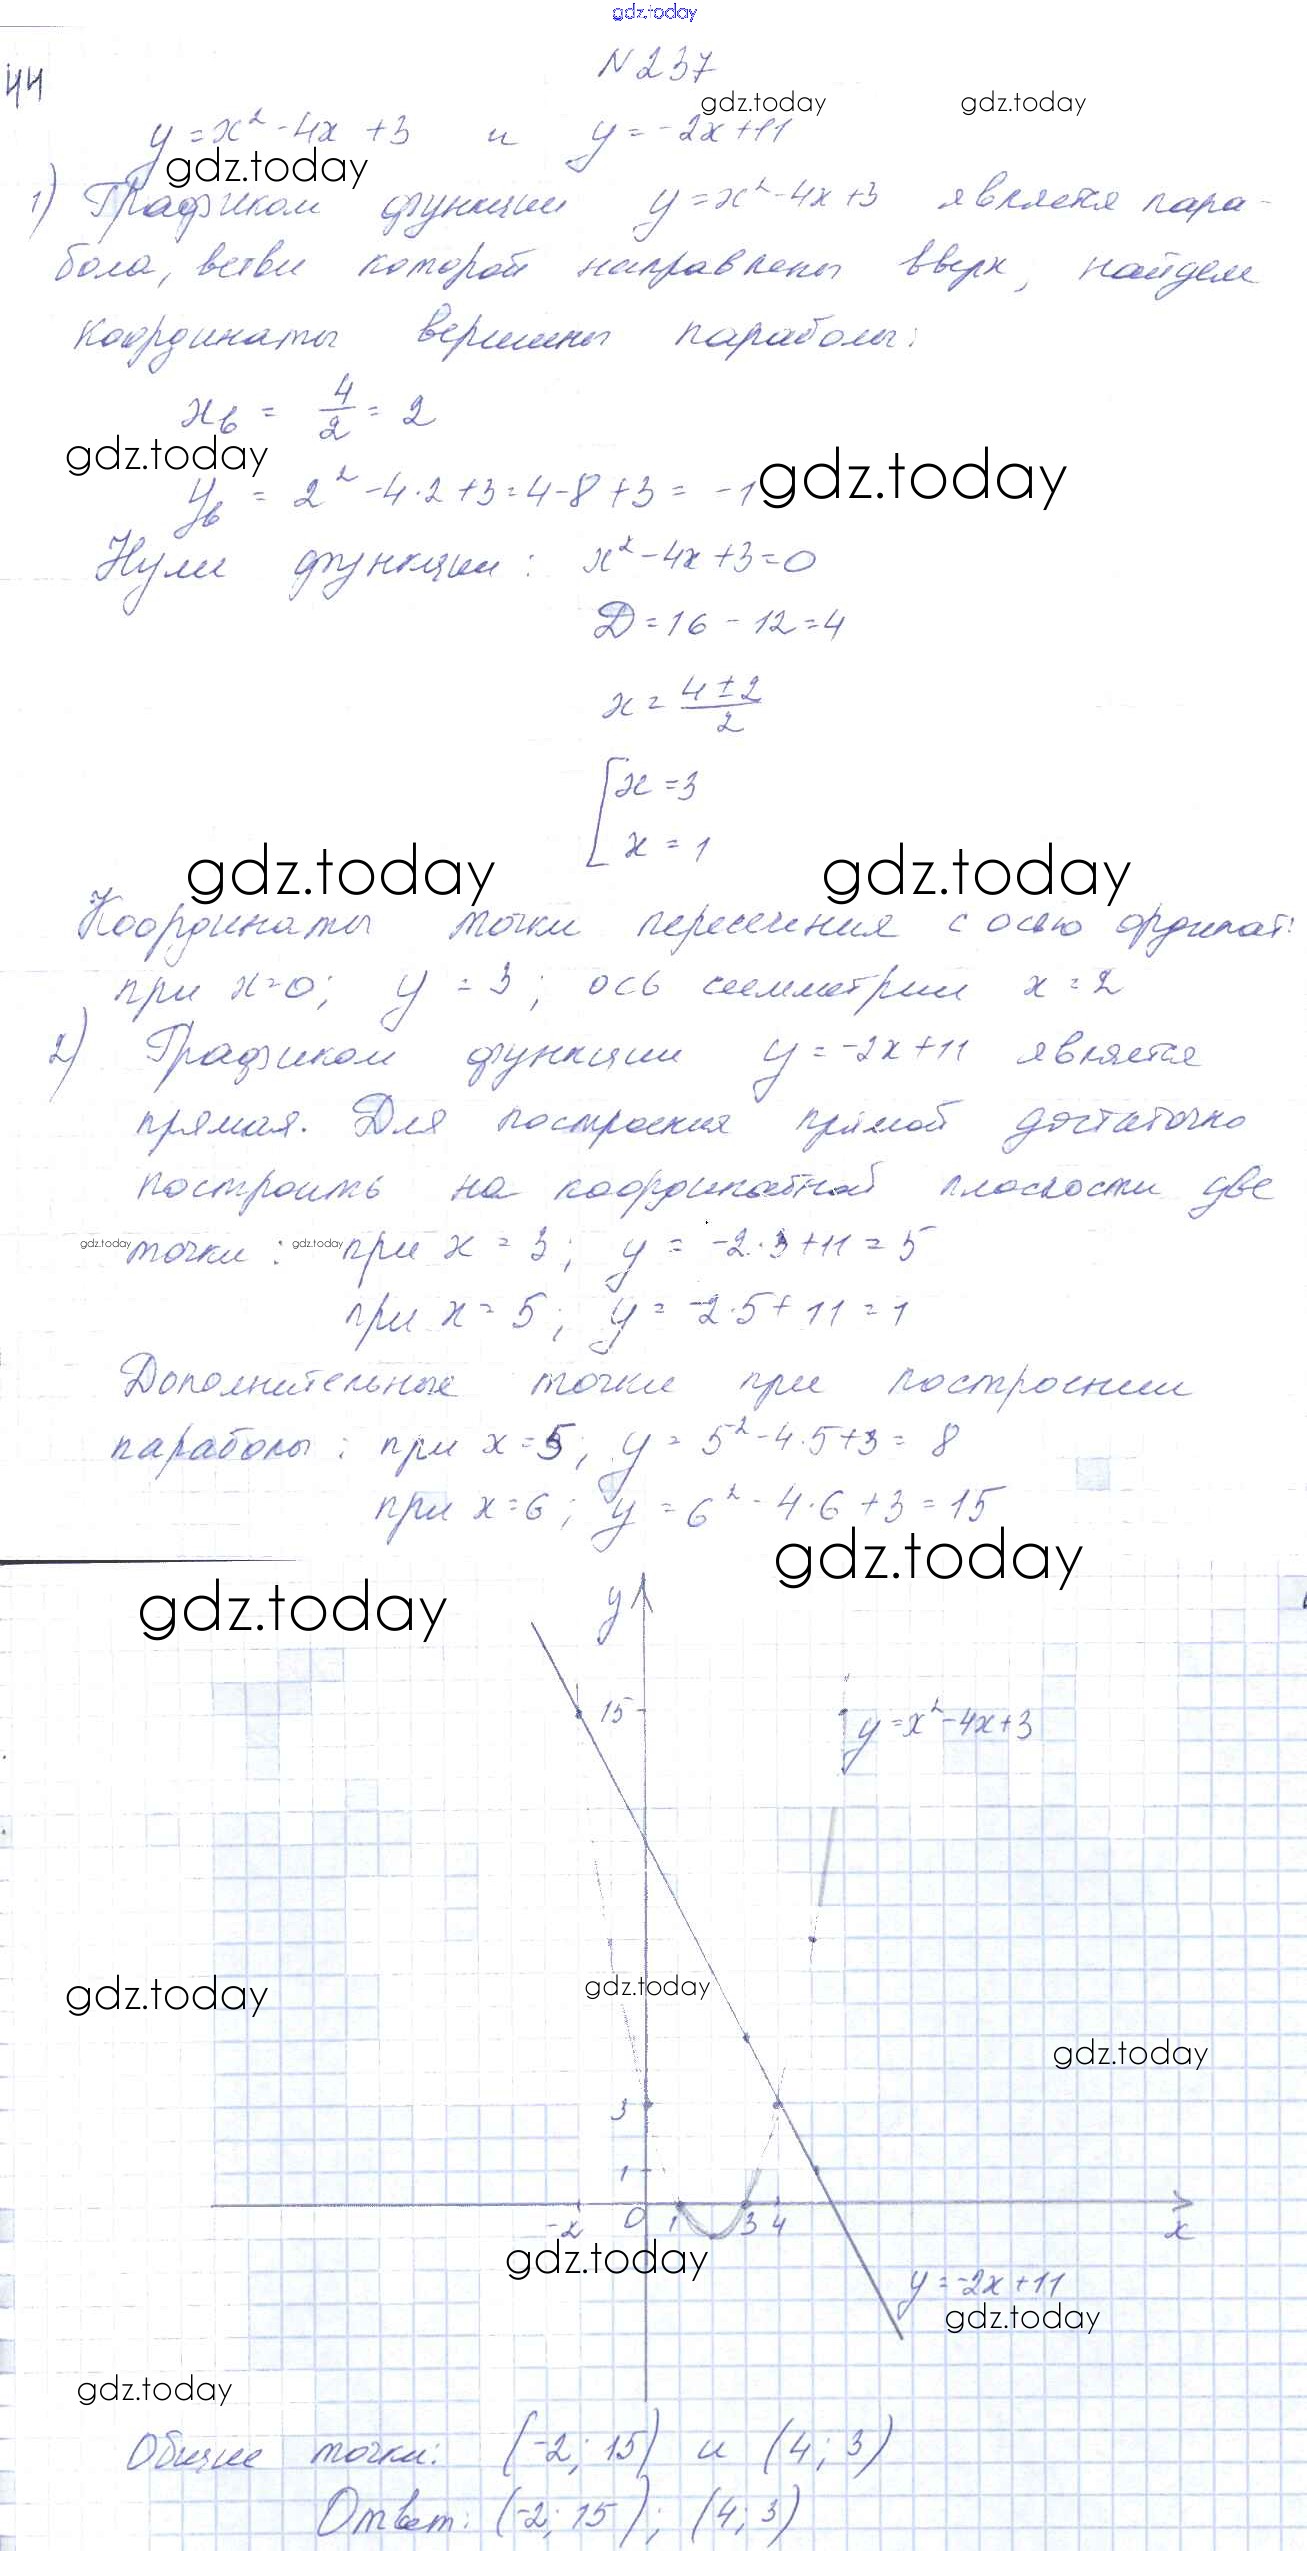 gdz.today
N 237
44
gdz.today gdz.today
y = x² - 4x + 3 и y = -2x + 11
gdz.today
1) Графиком функции y = x² - 4x + 3 является пара-
бола, ветви которой направлены вверх, найдем
координаты вершины параболы:
xв = 4/2 = 2
gdz.today gdz.today
yв = 2² - 4·2 + 3 = 4 - 8 + 3 = -1
Нули функции: x² - 4x + 3 = 0
D = 16 - 12 = 4
x = (4 ± 2)/2
[x = 3
x = 1
gdz.today gdz.today
Координаты точки пересечения с осью ординат:
при x = 0; y = 3; ось симметрии x = 2
2) Графиком функции y = -2x + 11 является
прямая. Для построения прямой достаточно
построить на координатной плоскости две
gdz.today точки: gdz.today при x = 3; y = -2·3 + 11 = 5
при x = 5; y = -2·5 + 11 = 1
Дополнительные точки при построении
параболы: при x = 5; y = 5² - 4·5 + 3 = 8
при x = 6; y = 6² - 4·6 + 3 = 15
gdz.today
gdz.today
y
15
y = x² - 4x + 3
gdz.today gdz.today
gdz.today
3
1
-2 0 1 3 4 x
gdz.today
y = -2x + 11
gdz.today
gdz.today
Общие точки: (-2; 15) и (4; 3)
Ответ: (-2; 15); (4; 3)